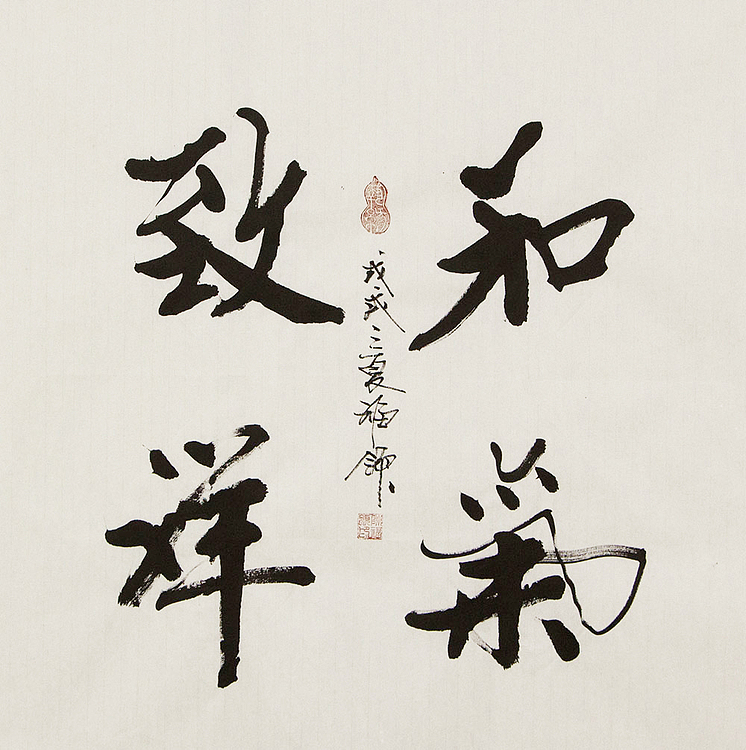 和氣
致祥
戊戌之夏